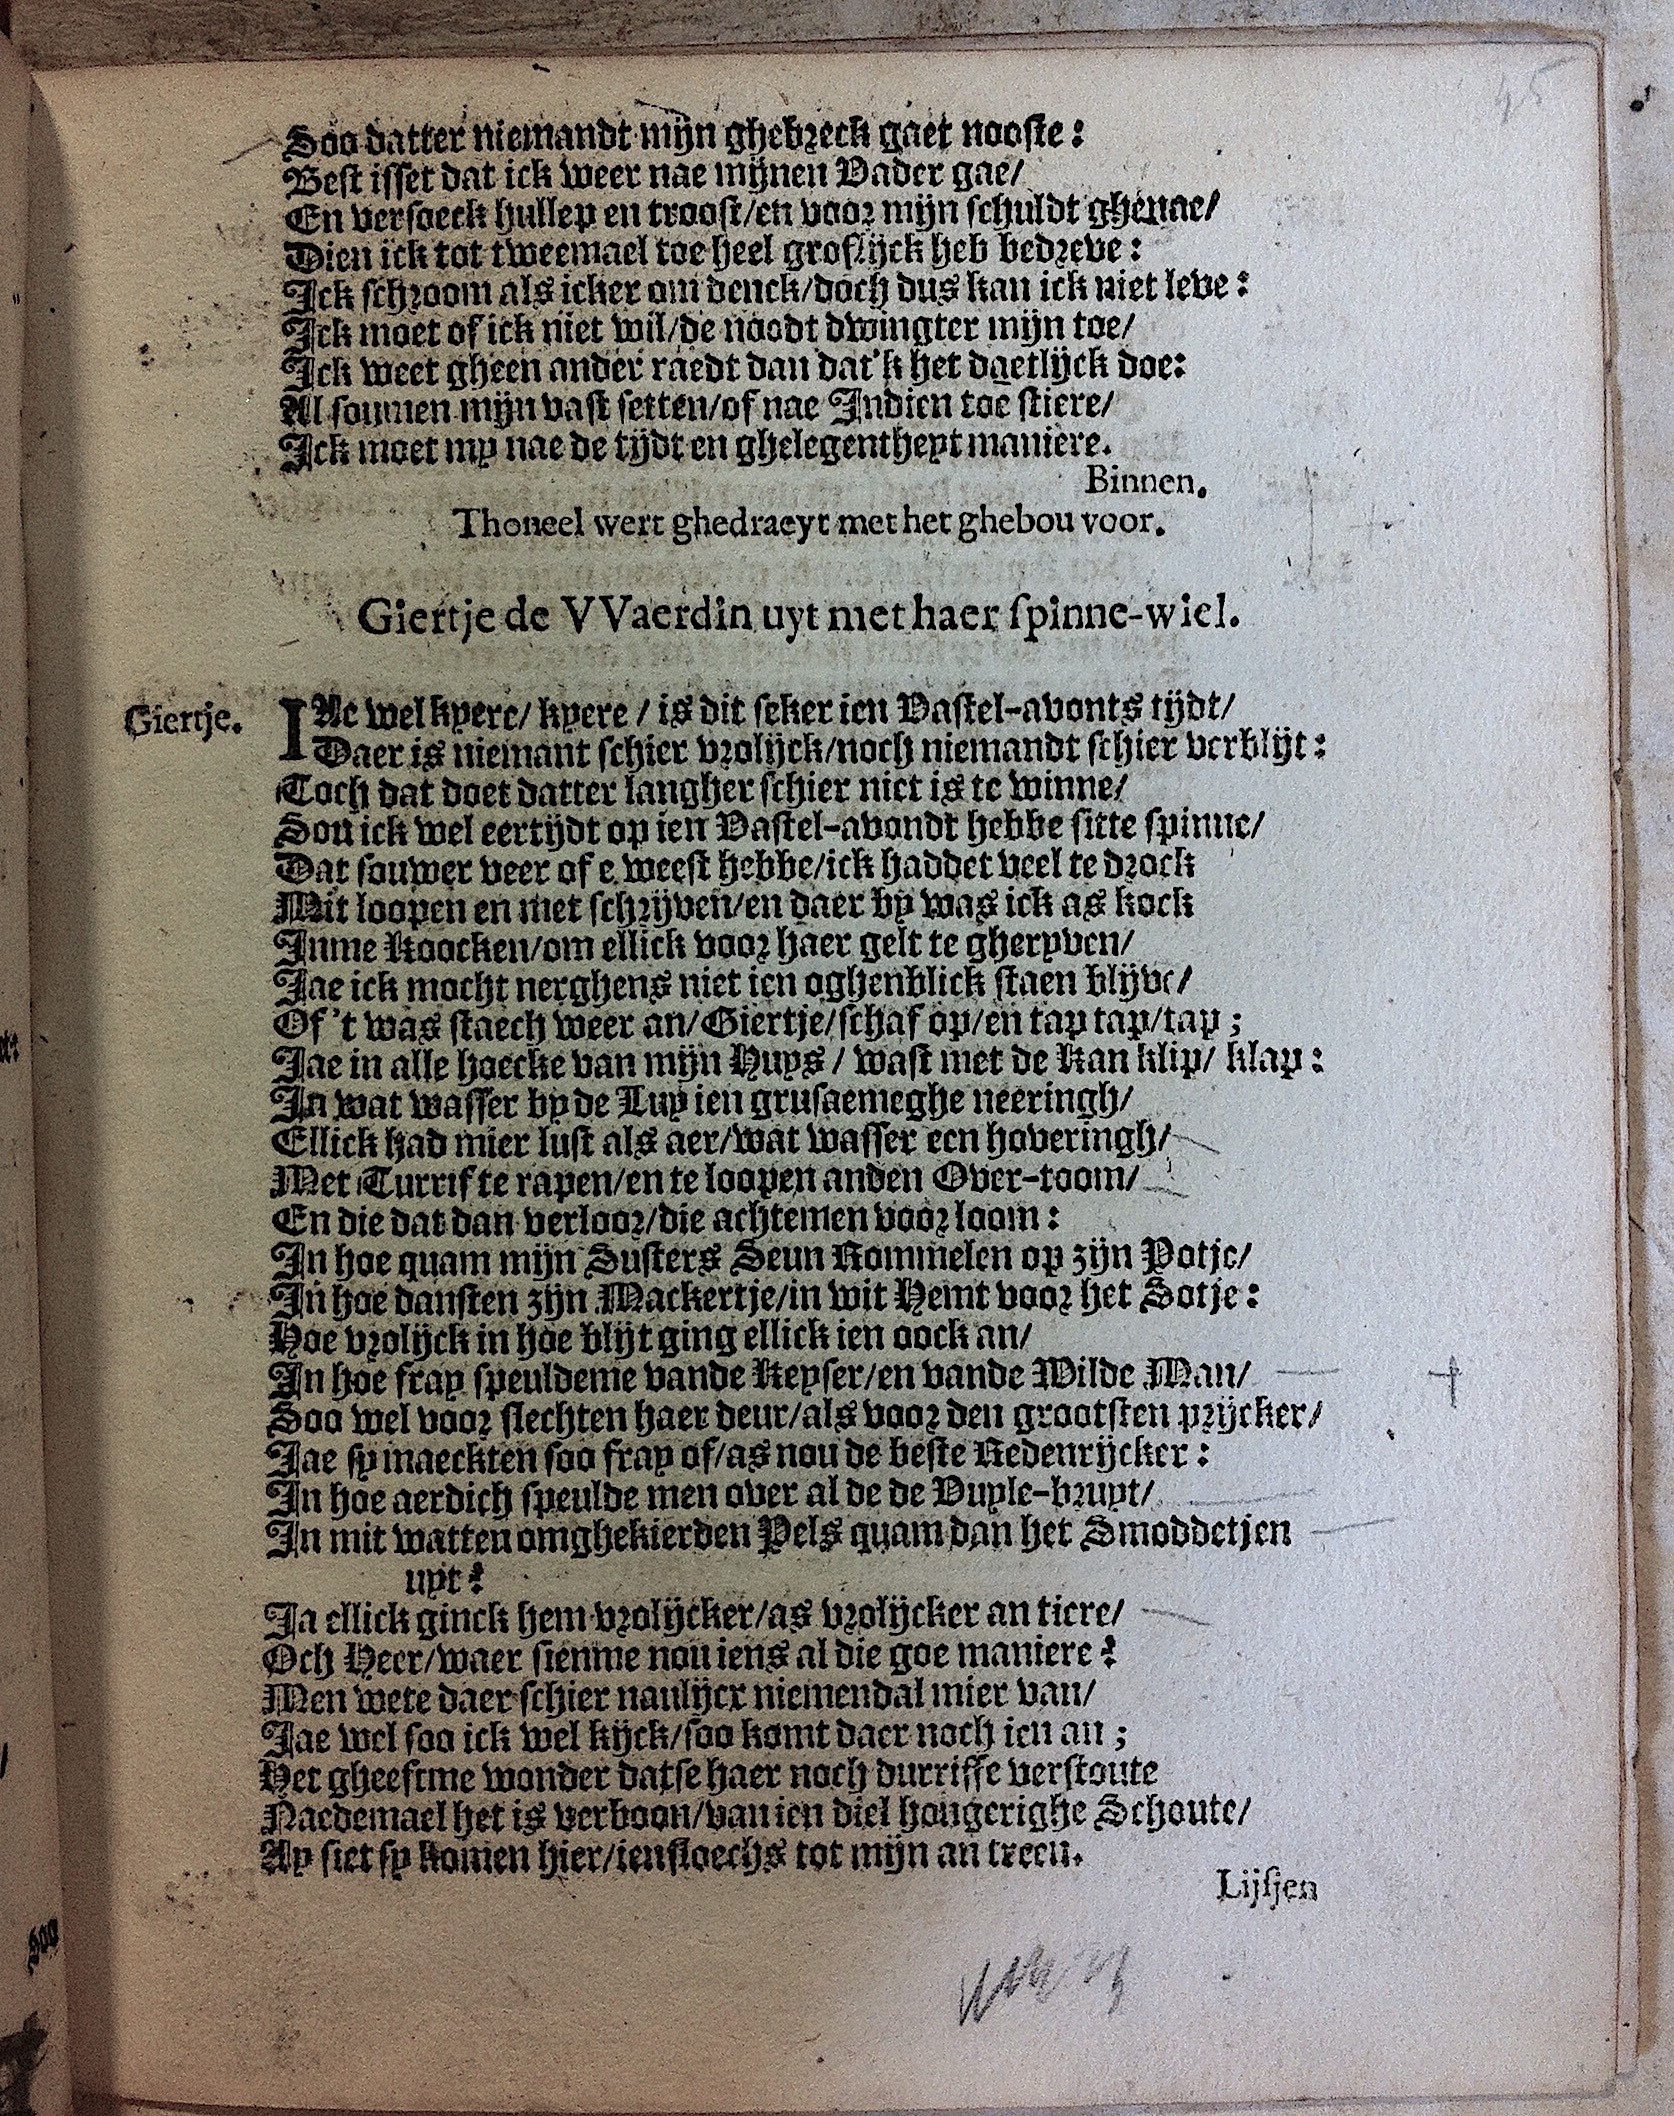 45
Soo datter niemandt mijn ghebreck gaet nooste:
Best isset dat ick weer nae mijnen Vader gae/
En versoeck hullep en troost/en voor mijn schuldt ghenae/
Dien ick tot tweemael toe heel groflijck heb bedreve:
Ick schroom als icker om denck/doch dus kan ick niet leve:
Ick moet of ick niet wil/de noodt dwingter mijn toe/
Ick weet gheen ander raedt dan dat'k het daetlijck doe:
Al soumen mijn vast setten/of nae Indien toe stiere/
Ick moet my nae de tijdt en ghelegentheyt maniere.
Binnen.
Thoneel wert ghedraeyt met het ghebou voor.
Giertje de VVaerdin uyt met haer spinne-wiel.
Giertje. IAe wel kyere/ kyere / is dit seker ien Vastel-avonts tijdt/
Daer is niemant schier vrolijck/noch niemandt schier verblijt:
Toch dat doet datter langher schier niet is te winne/
Sou ick wel eertijdt op ien Vastel-avondt hebbe sitte spinne/
Dat souwer veer of e weest hebbe/ick haddet veel te drock
Mit loopen en met schrijven/en daer by was ick as kock
Inme Koocken/om ellick voor haer gelt te gheryven/
Jae ick mocht nerghens niet ien oghenblick staen blijve/
Of 't was staech weer an/Giertje/schaf op/en tap tap/tap;
Jae in alle hoecke van mijn Huys / wast met de Kan klip/ klap:
In wat wasser by de Luy ien grusaemeghe neeringh/
Ellick had mier lust als aer/wat wasser een hoveringh/
Met Turrif te rapen/en te loopen anden Over-toom/
En die dat dan verloor/die achtemen voor loom:
In hoe quam mijn Susters Seun Rommelen op zijn Potje/
In hoe dansten zijn Mackertje/in wit Hemt voor het Sotje:
Hoe vrolijck in hoe blijt ging ellick ien oock an/
In hoe fray speuldeme vande Keyser/en vande Wilde Man/
Soo wel voor slechten haer deur/als voor den grootsten prijcker/
Jae sy maeckten soo fray of/as nou de beste Redenrijcker:
In hoe aerdich speulde men over al de de Vuyle-bruyt/
In mit watten omghekierden Pels quam dan het Smoddetjen
uyt?
Ja ellick ginck hem vrolijcker/as vrolijcker an tiere/
Och Heer/waer sienme nou iens al die goe maniere?
Men wete daer schier naulijcx niemendal mier van/
Jae wel soo ick wel kijck/soo komt daer noch ien an;
Het gheeftme wonder datse haer noch durriffe verstoute
Naedemael het is verboon/van ien diel hongerighe Schoute/
Ay siet sy komen hier/ienfloechs tot mijn an treen.
Lijsjen